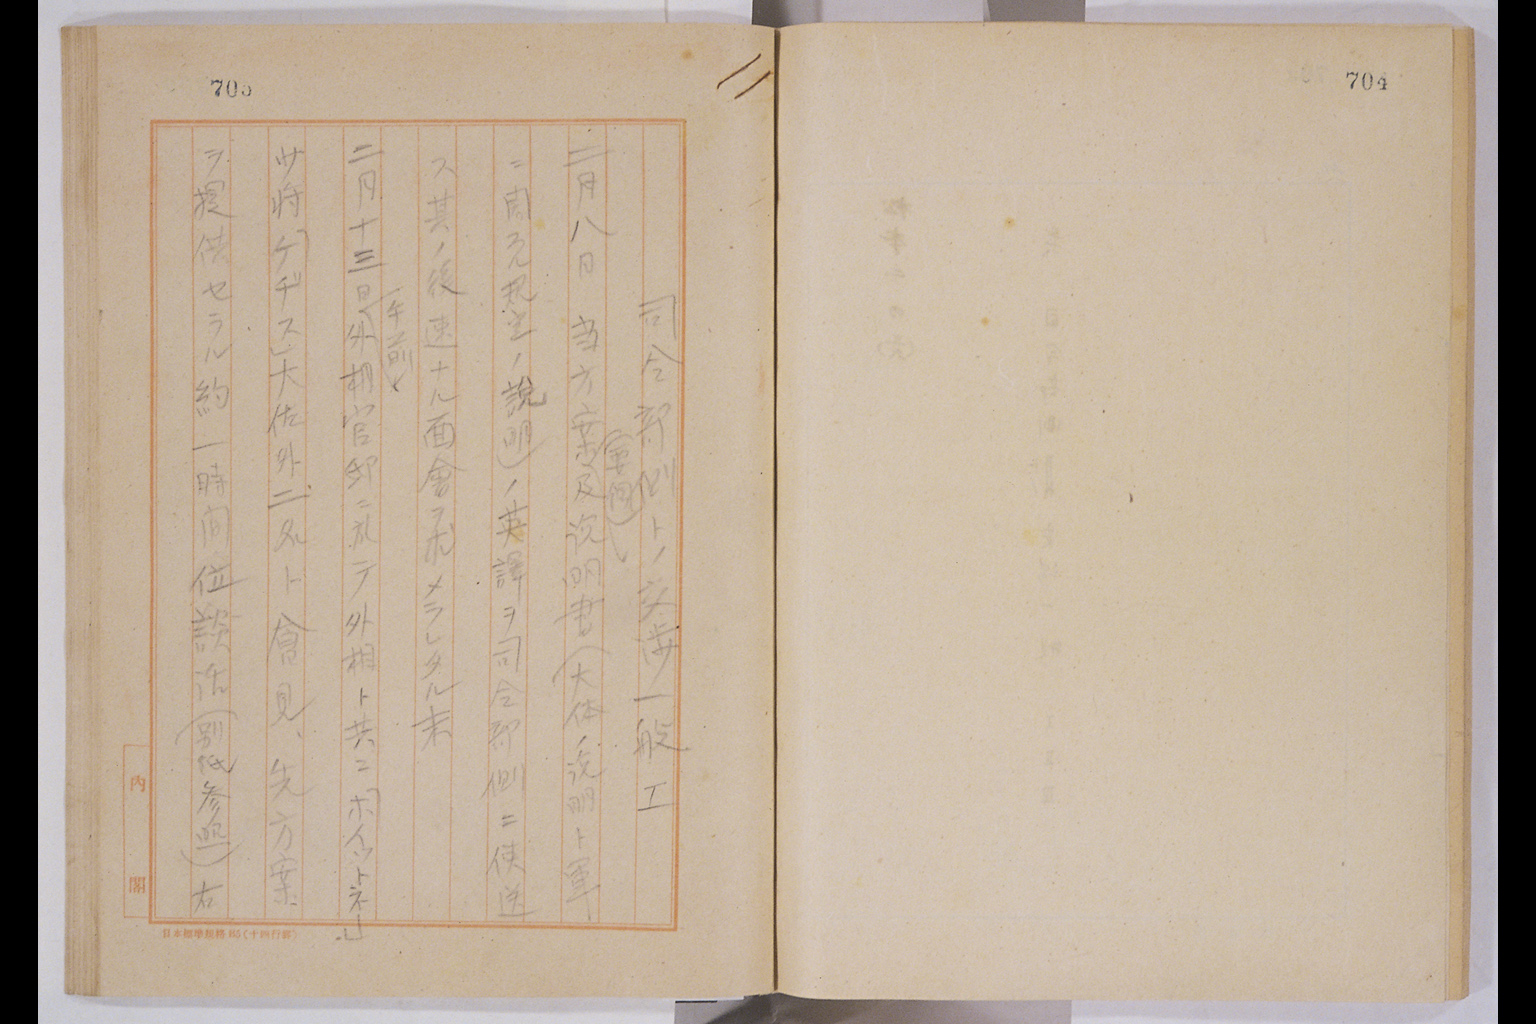 704
705
司令部側トノ交渉一般 工
二月八日 当方案(要向)及説明書(大体ノ説明ト軍
ニ関スル規定ノ説明)ノ英譯ヲ司令部側ニ使送
ス其ノ後速ナル面會ヲ求メラレタル末
二月十三日(午前)外相官邸ニ於テ外相ト共ニ「ホイットネー」
少将「ケヂス」大佐外二名ト會見、先方案
ヲ提供セラル約一時間位談話(別紙参照)右
内閣
日本標準規格B5(十四行罫)